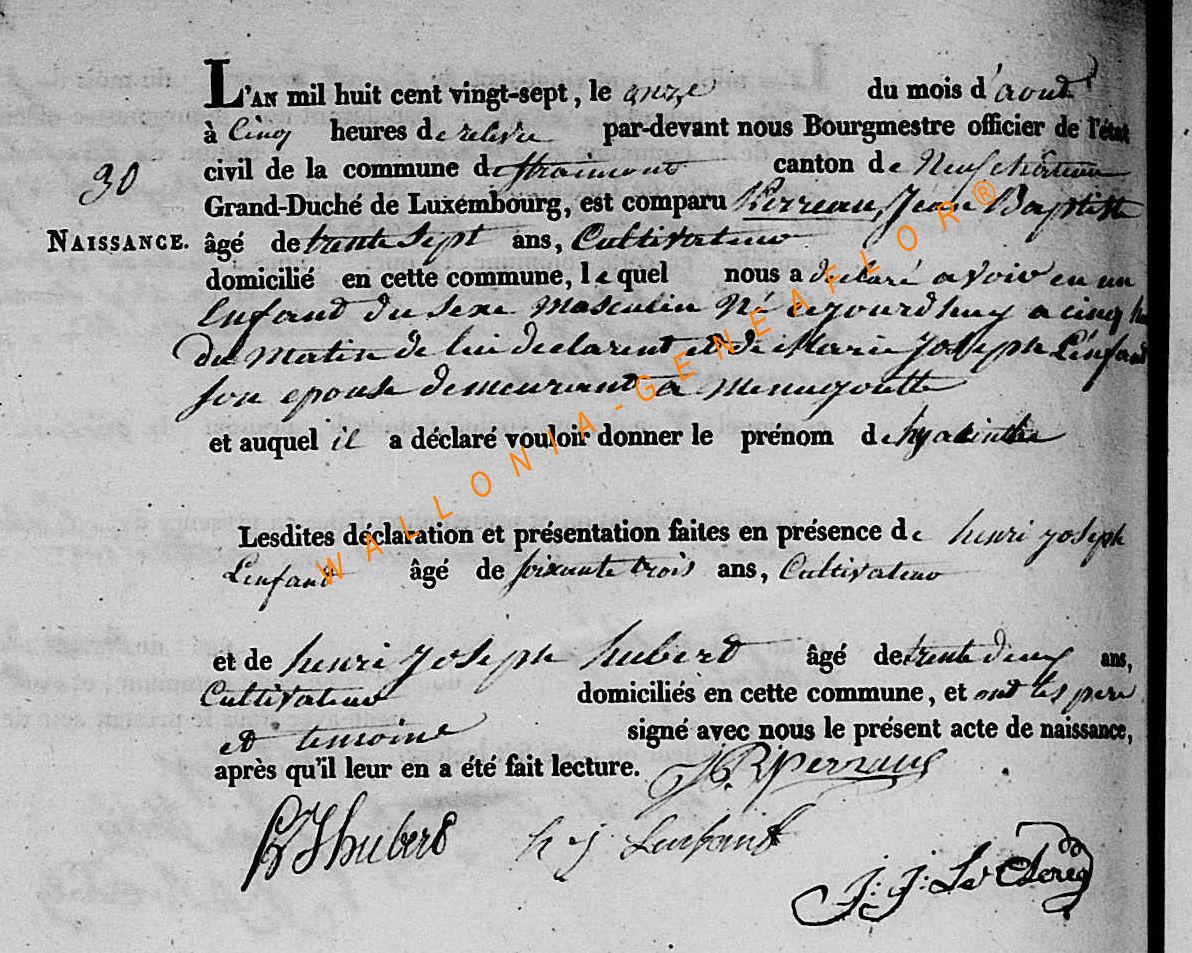 L'AN mil huit cent vingt-sept, le onze du mois d'aout
à Cinq heures de relevée par-devant nous Bourgmestre officier de l'état
civil de la commune de Straimont canton de Neufchâteau
30
Grand-Duché de Luxembourg, est comparu Perreau, Jean Baptiste
NAISSANCE.
âgé de trente Sept ans, Cultivateur
domicilié en cette commune, lequel nous a declaré avoir eu un
Enfant du sexe Masculin Né aujourdhuy a cinq
du Matin de lui declarent et de Marie Joseph L'enfant
son epouse demeurant a menugoutte
et auquel il a déclaré vouloir donner le prénom de hyacinthe
Lesdites déclaration et présentation faites en présence de henri joseph
L'enfant âgé de soixante trois ans, Cultivateur
et de henri joseph hubert âgé de trente deux ans,
Cultivateur domiciliés en cette commune, et ont les pere
et temoins signé avec nous le présent acte de naissance,
après qu'il leur en a été fait lecture. JB perraux
hJhubert h j Lenfant
J: J: Le Clercq
WALLONIA-GENEAFLOR®